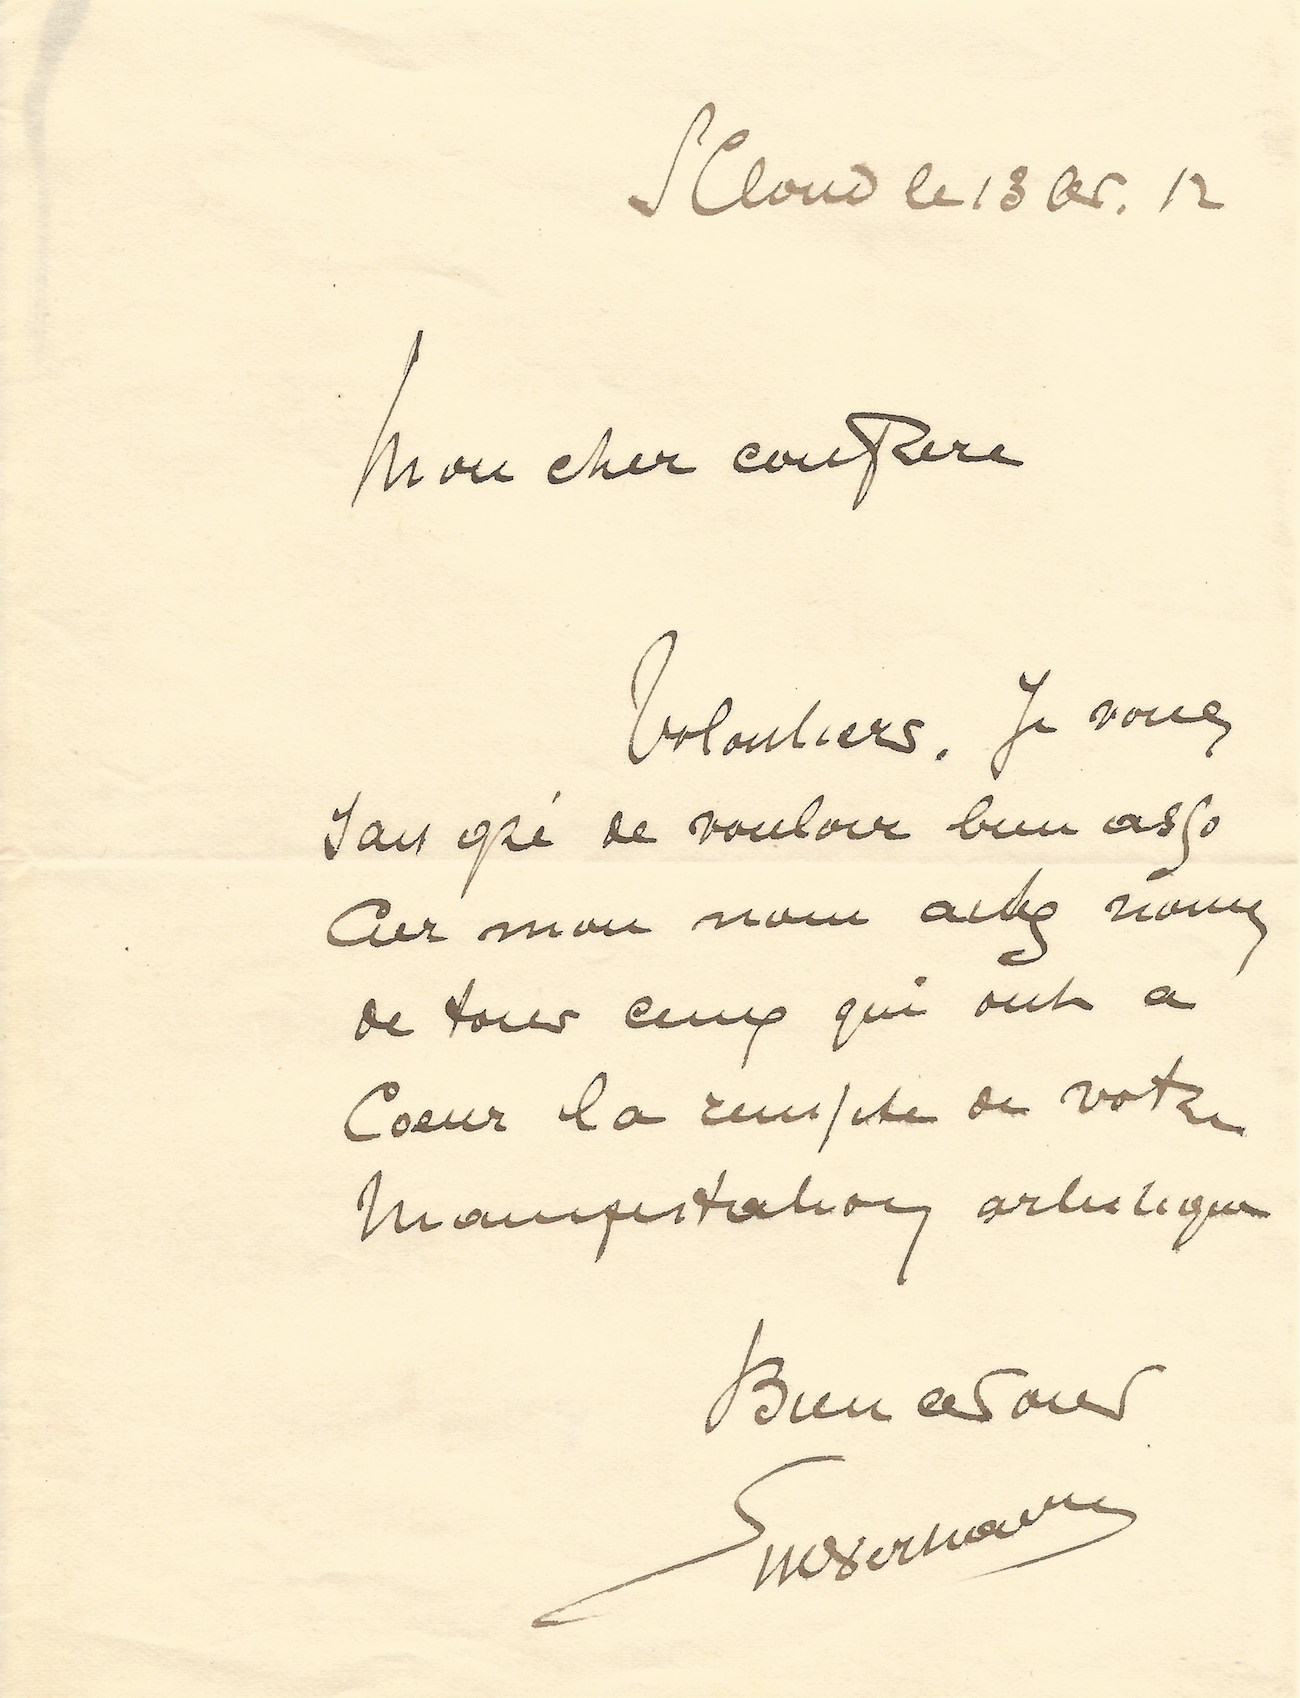 St Cloud le 13 Oct. 12
Mon cher confrere
Volontiers. Je vous
sais gré de vouloir bien asso
cier mon nom aux noms
de tous ceux qui ont a
Coeur la reussite de votre
Manifestation artistique
Bien a vous